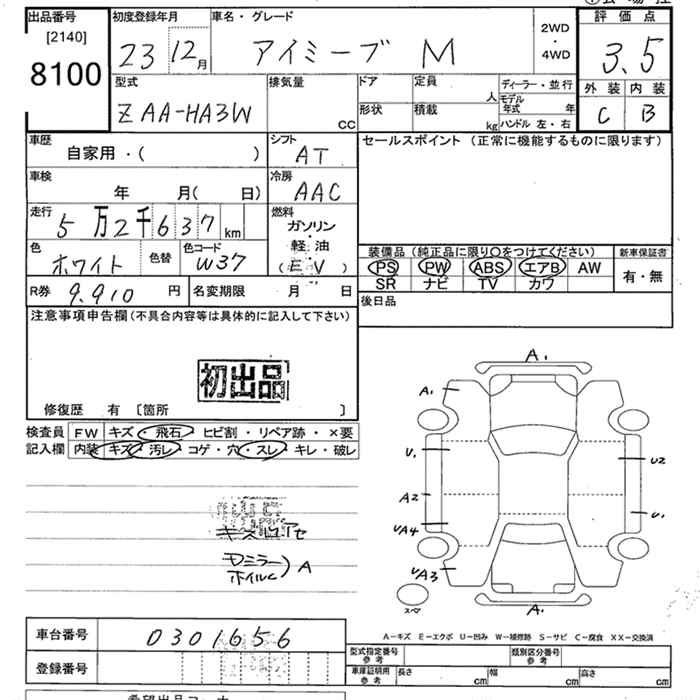 出品番号 初度登録年月 車名・グレード 評価点
[2140] 8100
23 12月 アイミーブ M 2WD・4WD 3.5
型式 排気量 ドア 定員 ディーラー・並行 外装 内装
ZAA-HA3W CC 形状 積載 人 kg モデル年式 年 ハンドル 左・右 C B
車歴 シフト セールスポイント (正常に機能するものに限ります)
自家用・( ) AT
車検 冷房
年 月( 日) AAC
走行 燃料
5万2千637km ガソリン・軽油
(EV)
色 色替 色コード 装備品(純正品に限り〇をつけてください) 新車保証書
ホワイト W37 PS PW ABS エアB AW 有・無
SR ナビ TV カワ
R券 9.910 円 名変期限 月 日 後日品
注意事項申告欄(不具合内容等は具体的に記入して下さい)
初出品
修復歴 有 〔箇所 〕
検査員 FW キズ・飛石 ヒビ割・リペア跡・×要
記入欄 内装 キズ・汚レ コゲ・穴・スレ・キレ・破レ
A1
A1
U1 U2
A2 U1
UA4
UA3
A1
スペ
キズ
ミラー
ホイルC)A
A-キズ E-エクボ U-凹み W-補修跡 S-サビ C-腐食 XX-交換済
車台番号 0301656
型式指定番号 参考 類別区分番号 参考
登録番号 車庫証明用 参考 長さ cm 幅 cm 高さ cm